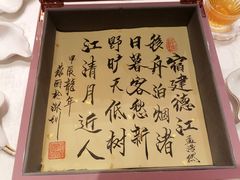 宿建德江
孟浩然
移舟泊烟渚
日暮客愁新
野旷天低树
江清月近人
甲辰龍年